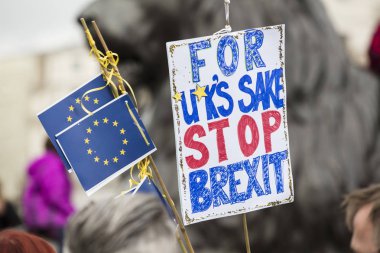 FOR
UK'S SAKE
STOP
BREXIT